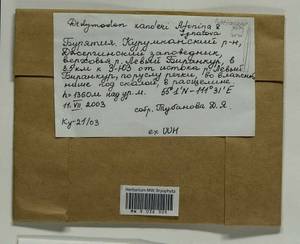 Didymodon zanderi Afonina &
Ignatova
Бурятия, Курумканский р-н,
Джергинский заповедник,
верховья р. Левый Биранкур, в
3,5 км к З-ЮЗ от истока р. Левый
Биранкур, по руслу речки, во влажной
нише под скалой, в расщелине
h=1360м над ур. м. 55°1'N - 111°31'E
11.VII 2003
собр. Тубанова Д.Я.
Ку-21/03
ex UUH
Herbarium MW, Bryophyta